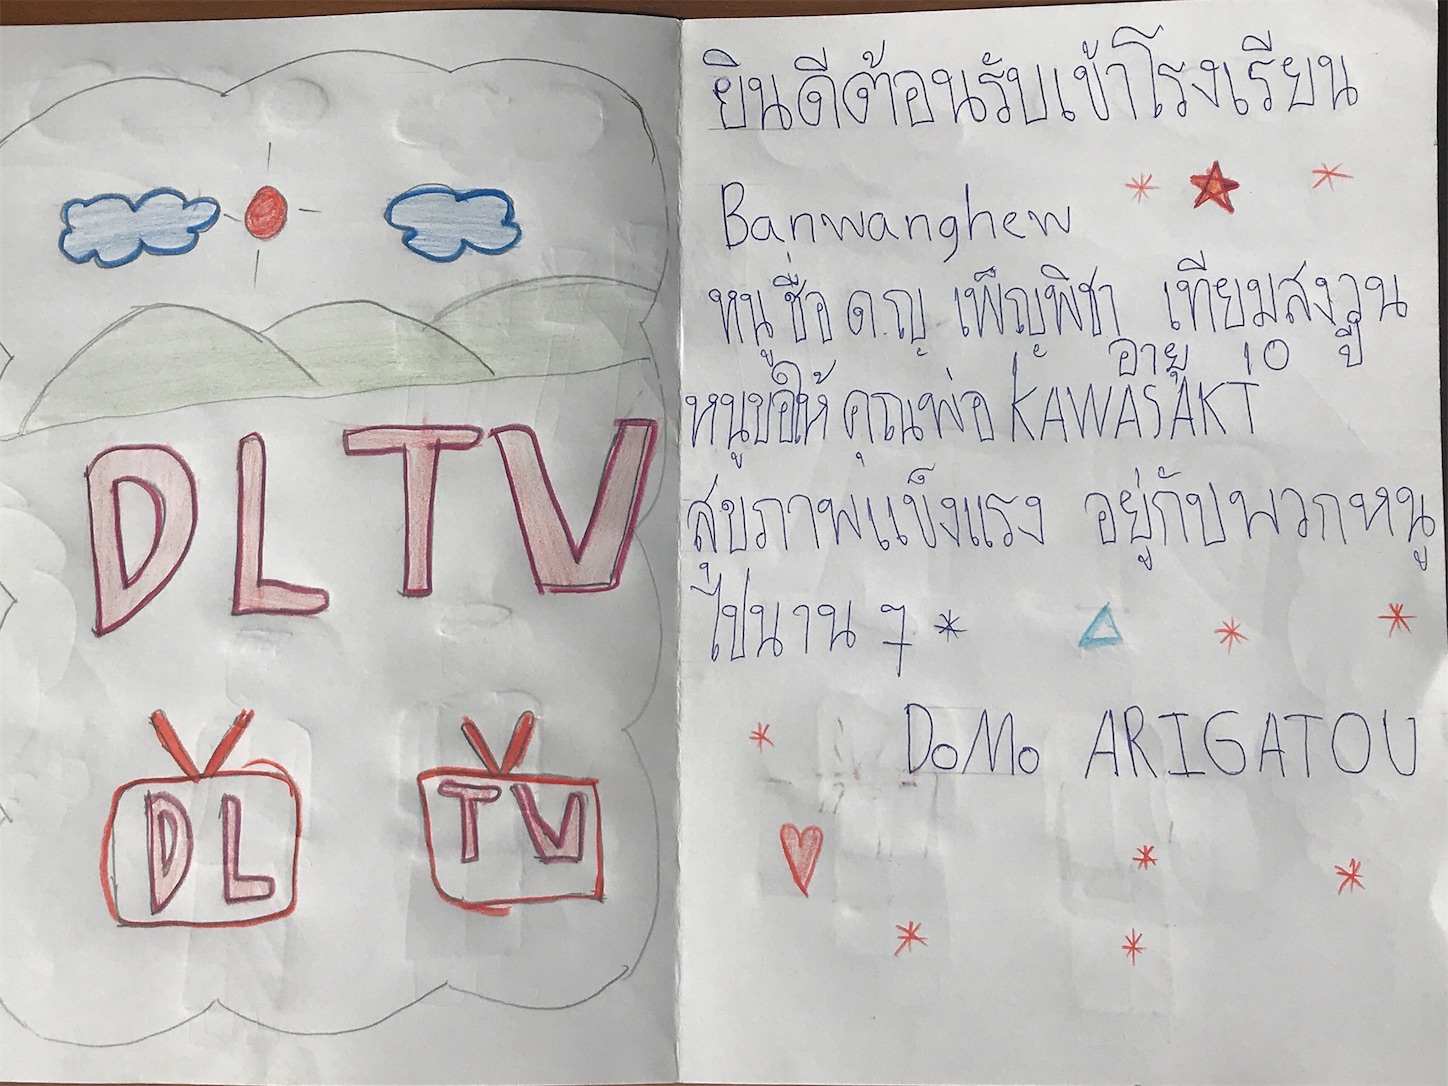 DLTV
DL
TV
ยินดีต้อนรับเข้าโรงเรียน
Banwanghew
หนูชื่อ ด.ญ เพ็ญพิชา เทียมสงวน
อายุ 10 ปี
หนูขอให้ คุณพ่อ KAWASAKI
สุขภาพแข็งแรง อยู่กับพวกหนู
ไปนาน ๆ
DoMo ARIGATOU